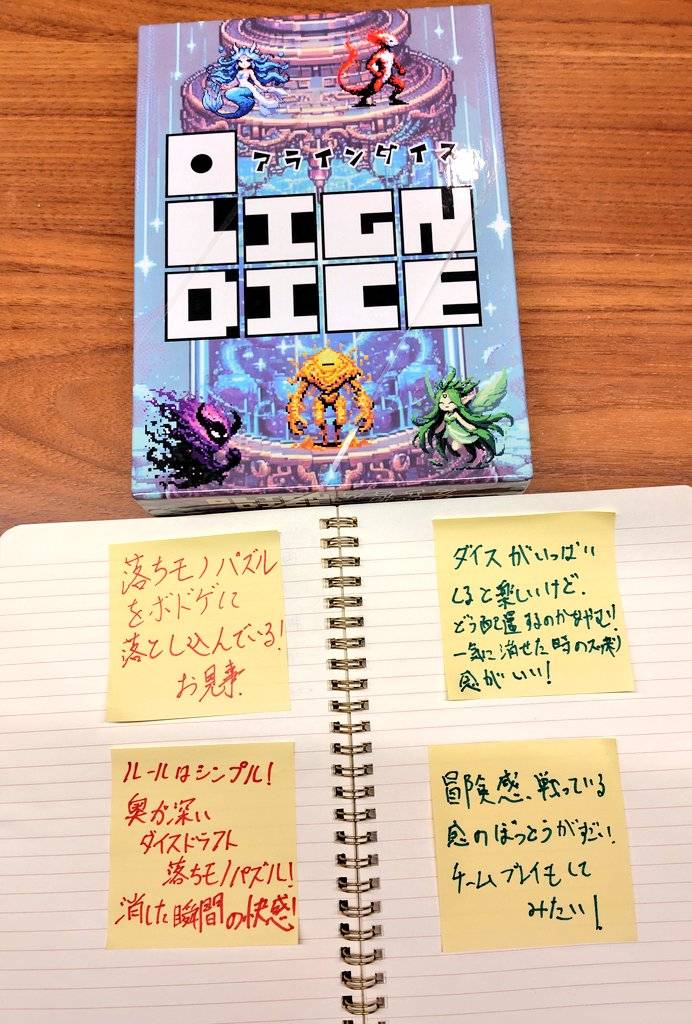 アラインダイス
LIGN
DICE
落ちモノパズル
をボドゲに
落とし込んでいる!
お見事
ダイスがいっぱい
くると楽しいけど、
どう配置するのかなやむ!
一気に消せた時のスッキリ
感がいい!
ルールはシンプル!
奥が深い
ダイスドラフト
落ちモノパズル!
消した瞬間の快感!
冒険感、戦っている
チームプレイもして
みたい!